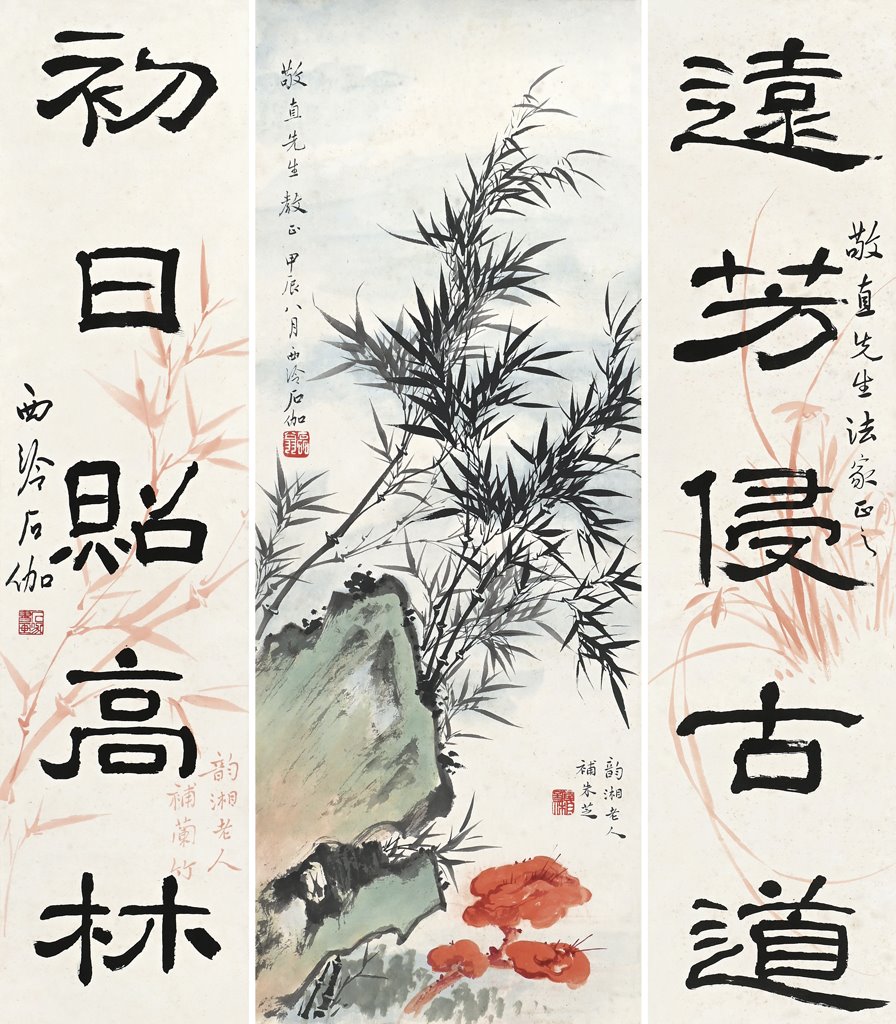 遠芳侵古道
敬直先生法家正之
敬直先生教正 甲辰八月 西泠石伽
韵湘老人
補朱芝
初日照高林
西泠石伽
韵湘老人
補蘭竹